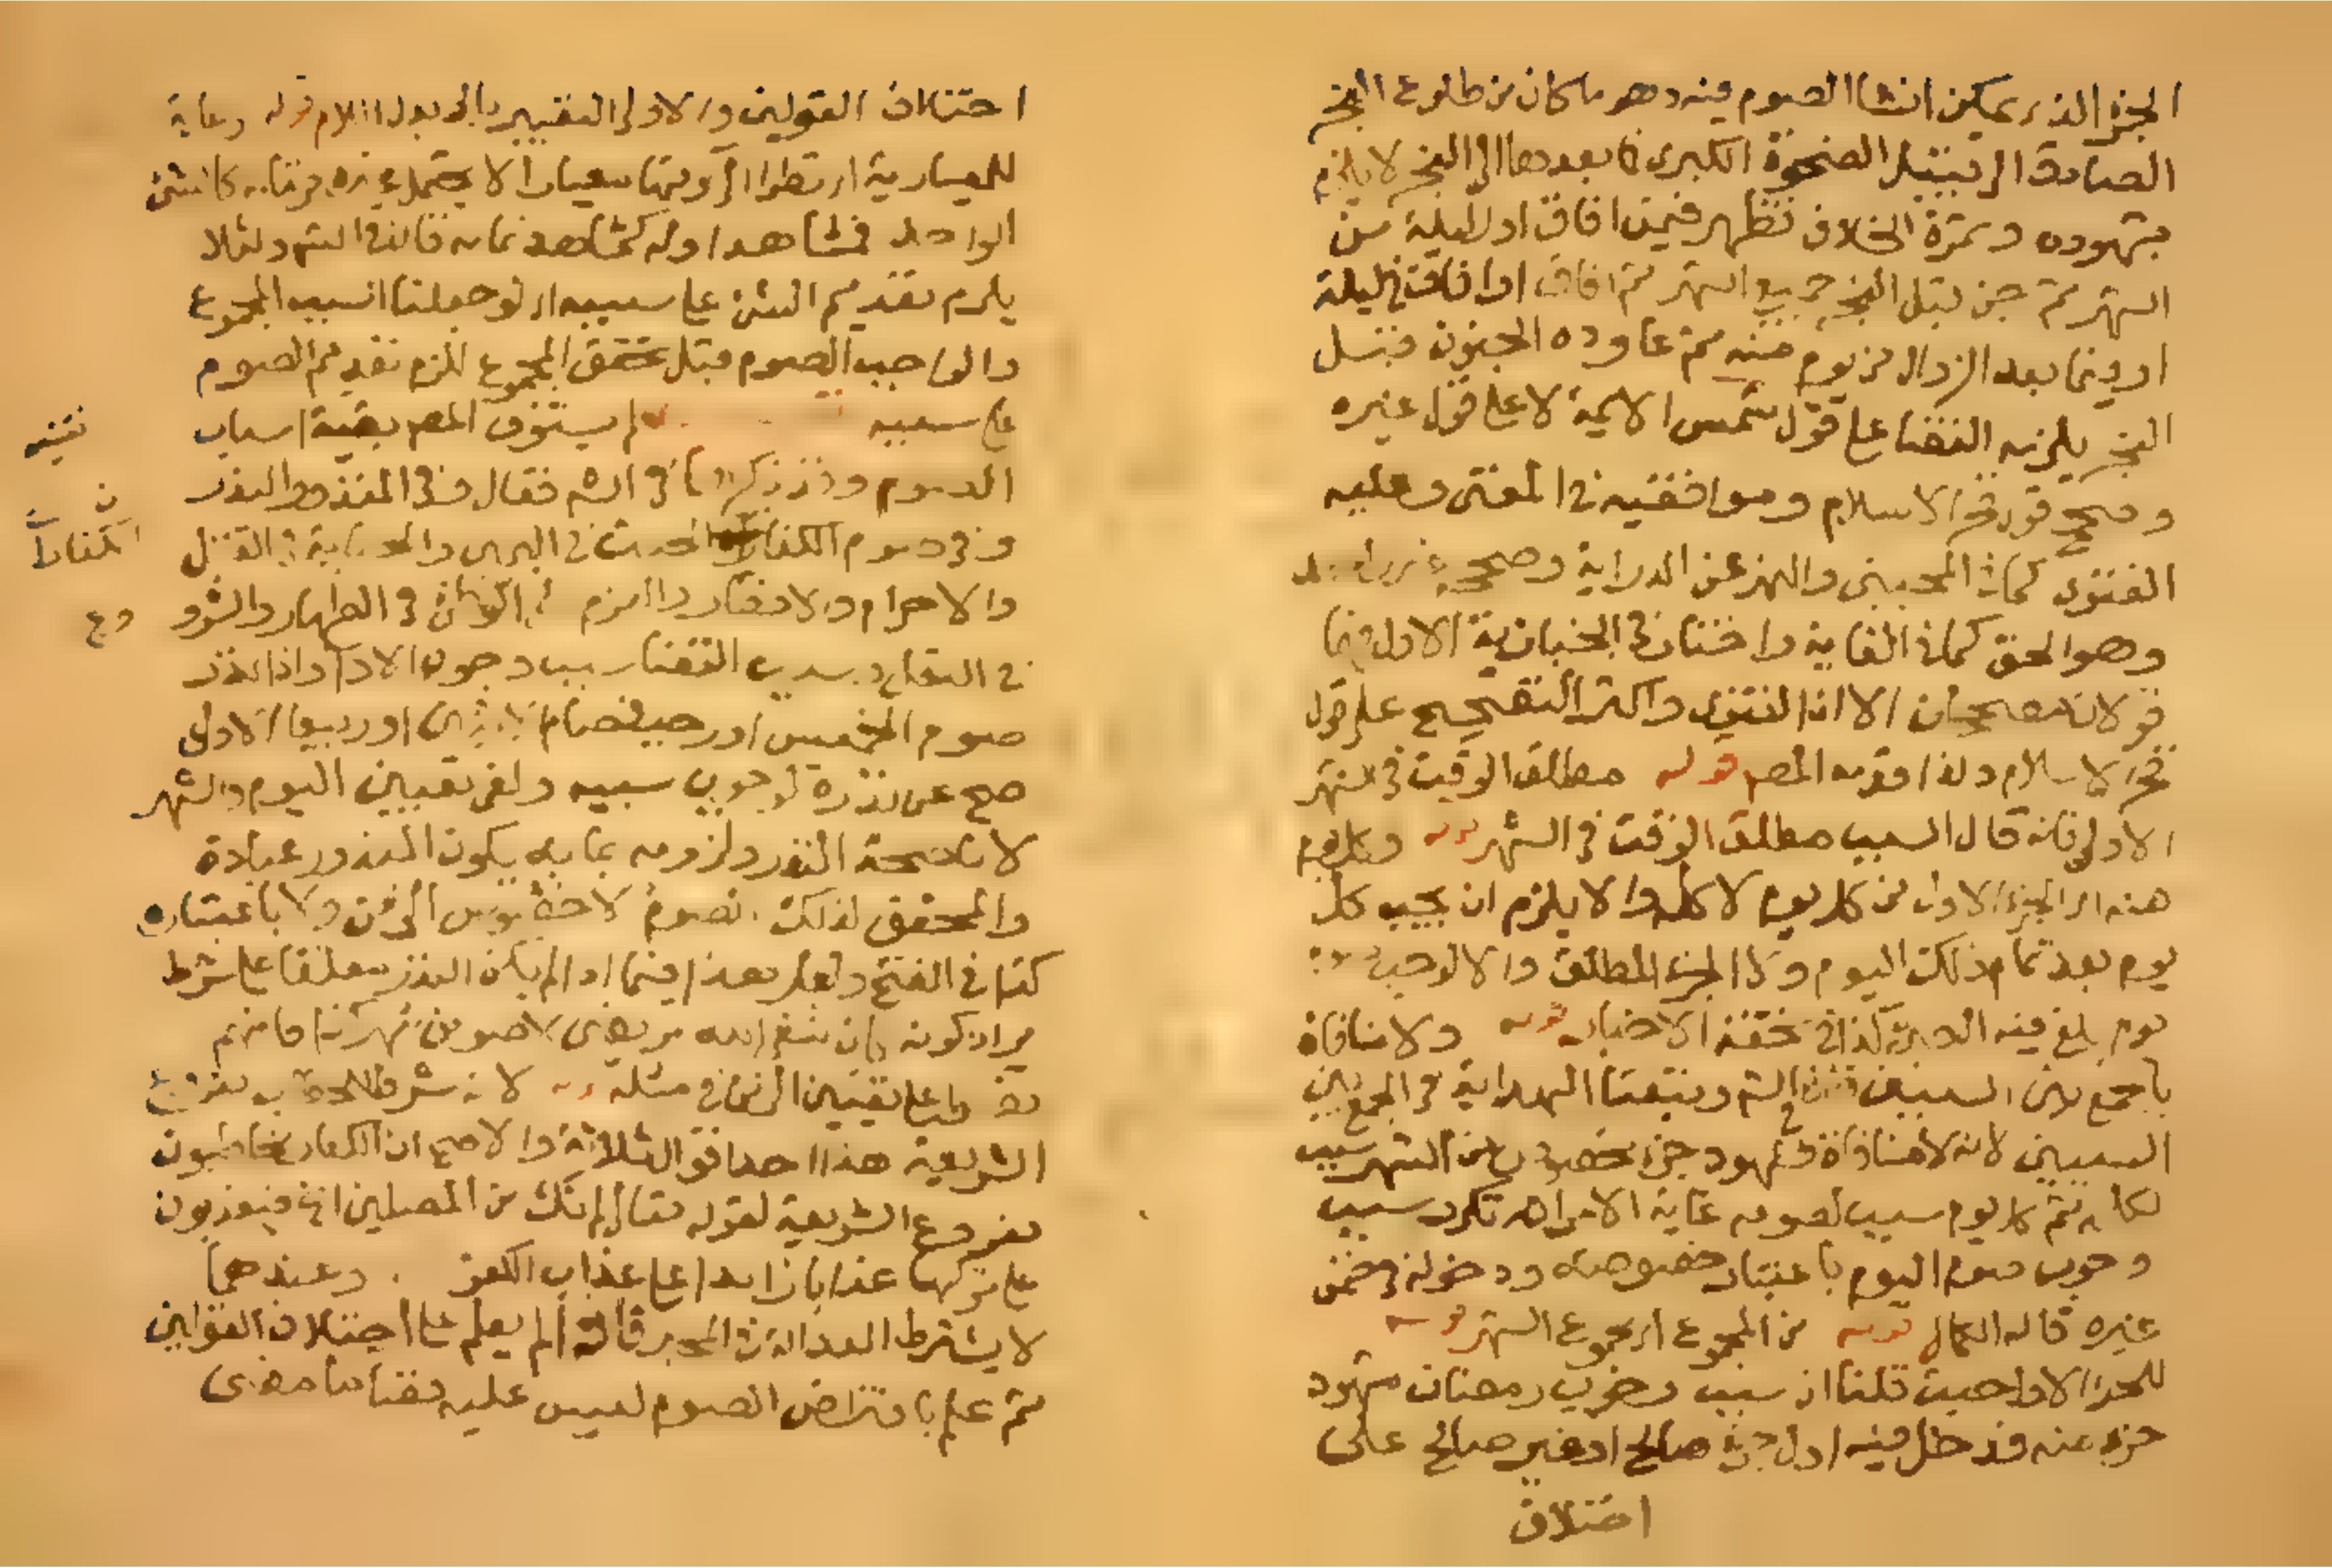 الجزء الذي يمكن انشا الصوم فيه وهو ما كان من طلوع الفجر
الصادق الى قبيل الضحوة الكبرى لا بعدها الى الفجر لا يلزم
بشهوده وثمرة الخلاف تظهر فيمن افاق اول ليلة من
الشهر ثم جن قبل الفجر جميع الشهر ثم افاق او افاق في ليلة
او فيما بعد الزوال من يوم منه ثم عاوده الجنون قبل
الفجر يلزمه القضا على قول شمس الايمة لا على قول غيره
وصحح قول فخر الاسلام وموافقيه في المغنى وعليه
الفتوى كما في المجتبى والنهر عن الدراية وصححه غير واحد
وهو الحق كما في الغاية واختار في الخبازية الاول فهما
قولان مصححان الا ان الفتوى واكثر التصحيح على قول
فخر الاسلام ولذا قدمه المص قوله مطلق الوقت في الشهر
الاول فانه قال السبب مطلق الوقت في الشهر قوله وكل يوم
منه اي الجزء الاول من كل يوم لا كله والا يلزم ان يجب كل
يوم بعد تمام ذلك اليوم ولا الجزء المطلق والا لوجب
يوم بلغ فيه الصبي كذا في تحفة الاخيار قوله ولا منافاة
بالجمع بين السببين الش وتبعنا الهداية في الجمع بين
السببين لانه لا منافاة فشهود جزء من الشهر سبب
لكله ثم كل يوم سبب لصومه غاية الامر انه تكرر سبب
وجوب صوم اليوم باعتبار خصوصه ودخوله في ضمن
غيره قاله الكمال قوله من المجموع اي مجموع الشهر قوله
للجزء الاول حيث قلنا ان سبب وجوب رمضان شهود
جزء منه فدخل فيه اول جزء صالح او غير صالح على
اختلاف
اختلاف القولين والاولى التعبير بالى بدل اللام قوله رعاية
للمعيارية اي نظرا الى وقتها معيارا لا يحتمل غيره فرقتا به كالشئ
الواحد فشاهد اوله كشاهد تمامه قاله في الش ولئلا
يلزم تقديم الشئ على سببه اي لو جعلنا السبب المجموع
والواجب الصوم قبل تحقق المجموع للزم تقديم الصوم
على سببه لم يستوف المص بقية اسباب
تتمة
الصوم وقد ذكرها في الش فقال في المنذور النذر
وفي صوم الكفارات الحنث في اليمين والجناية في القتل
الكفارات
والاحرام والافطار والعزم في الظهار والشروع
في النفل وسبب القضا سبب وجوب الاداء واذا نذر
صوم الخميس او رجب فصام الاثنين او ربيعا الاول
صح عن نذره لوجوب سببه ولغى تعيين اليوم والشهر
لان صحة النذر ولزومه بما به يكون المنذور عبادة
والمحقق لذلك الصوم لا خصوص الزمن ولا باعتباره
كذا في الفتح ولعل هذا فيما اذا لم يكن النذر معلقا على شرط
يراد كونه بان شفى الله مريضي لاصومن شهر كذا فانهم
نصوا على تعيين الزمن في مثله قوله لانه شرط للخطاب بفروع
الشريعة هذا احد اقوال ثلاثة والاصح ان الكفار مخاطبون
بفروع الشريعة لقوله تعالى لم نك من المصلين الخ فيعذبون
على تركها عذابا زايدا على عذاب الكفر وعندهما
لا يشترط العدالة في المخبر قاله لم يعلم على اختلاف القولين
ثم علم بافتراض الصوم ليس عليه قضا ما مضى